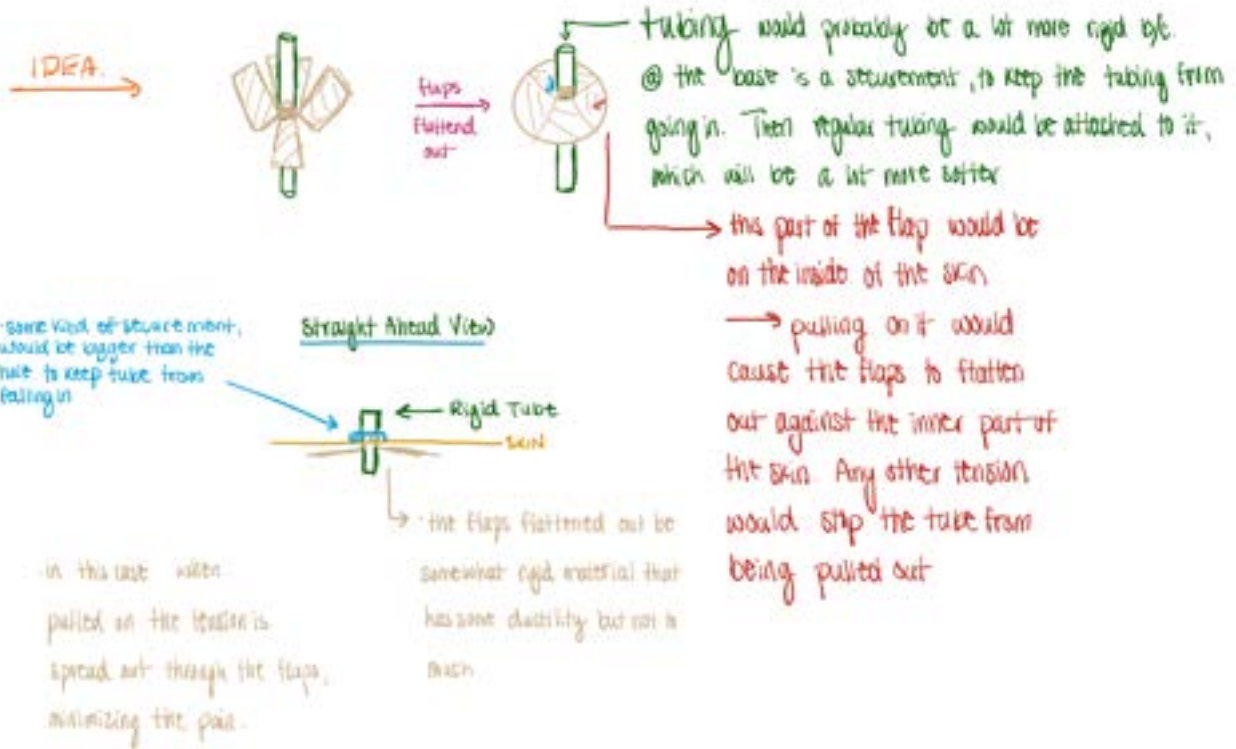 IDEA.
flaps
flattend
out
tubing would probably be a lot more rigid b/c
@ the base is a securement, to keep the tubing from
going in. Then regular tubing would be attached to it,
which will be a lot more softer
this part of the flap would be
on the inside of the skin
→ pulling on it would
cause the flaps to flatten
out against the inner part of
the skin. Any other tension
would stop the tube from
being pulled out
some kind of securement,
would be bigger than the
hole to keep tube from
falling in
Straight Ahead View
Rigid Tube
SKIN
the flaps flattened out be
somewhat rigid material that
has some ductility but not to
much.
in this case when
pulled on the tension is
spread out through the flaps,
minimizing the pain.